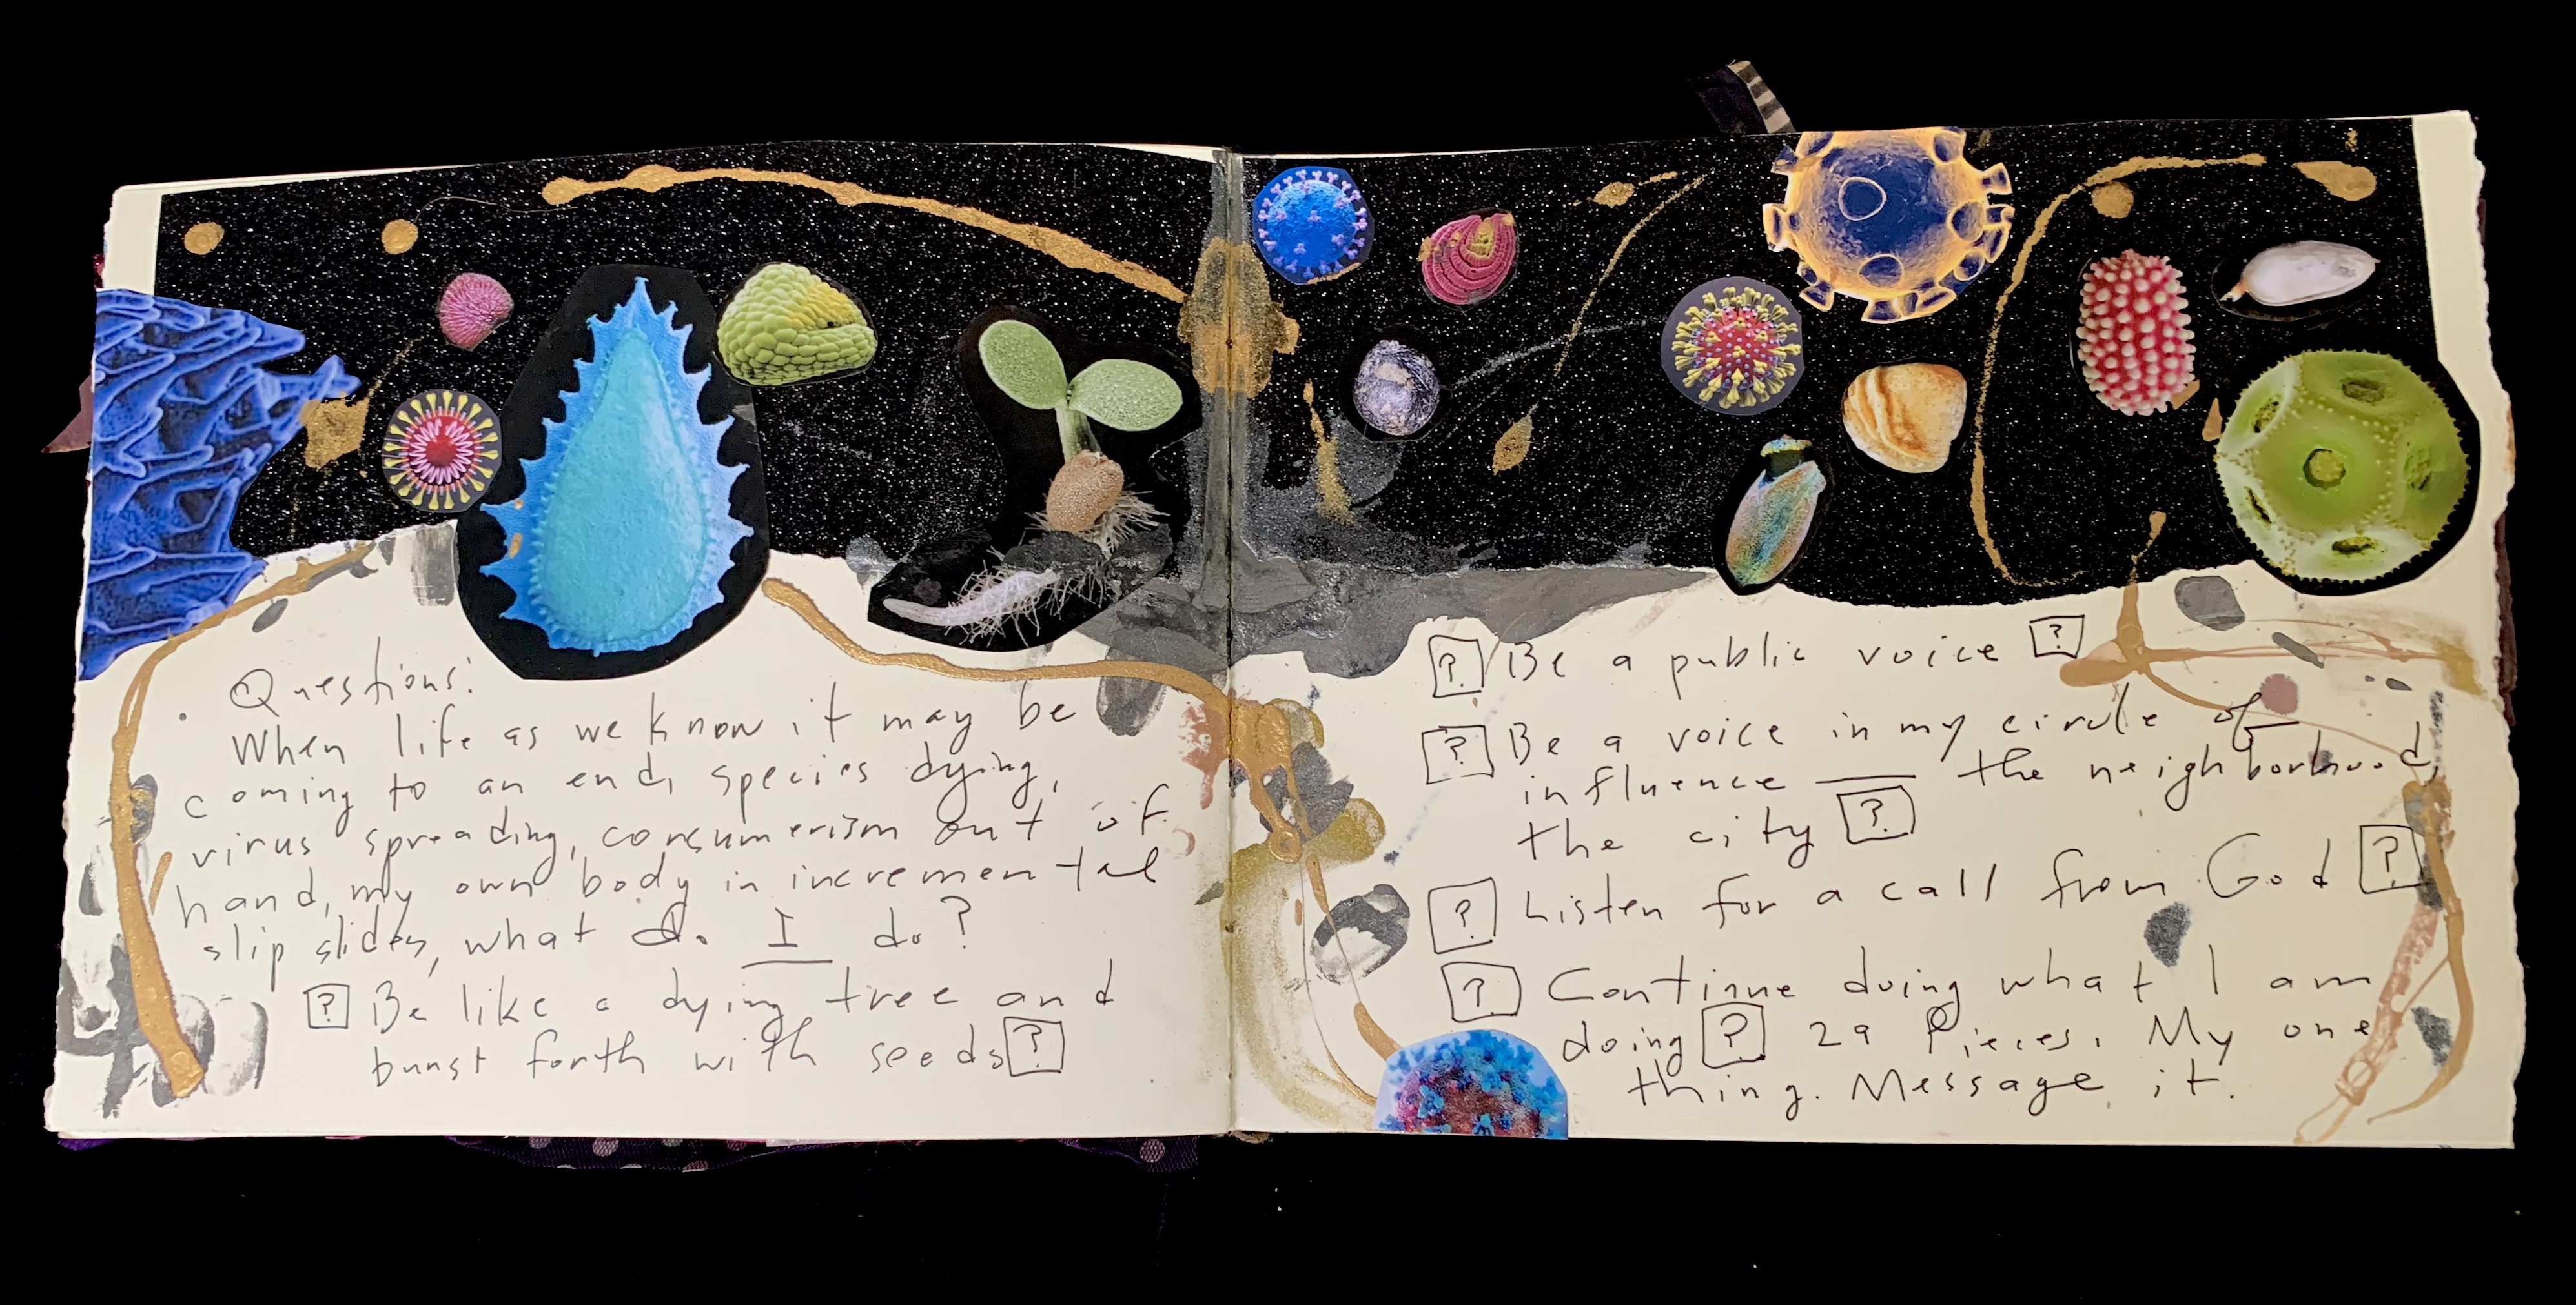 Questions:
When life as we know it may be
coming to an end, species dying,
virus spreading, consumerism out of
hand, my own body in incremental
slip slides, what do I do?
[?] Be like a dying tree and
burst forth with seeds [?]
[?] Be a public voice [?]
[?] Be a voice in my circle of
influence — the neighborhood,
the city [?]
[?] Listen for a call from God [?]
[?] Continue doing what I am
doing [?] 29 Pieces. My one
thing. Message it.